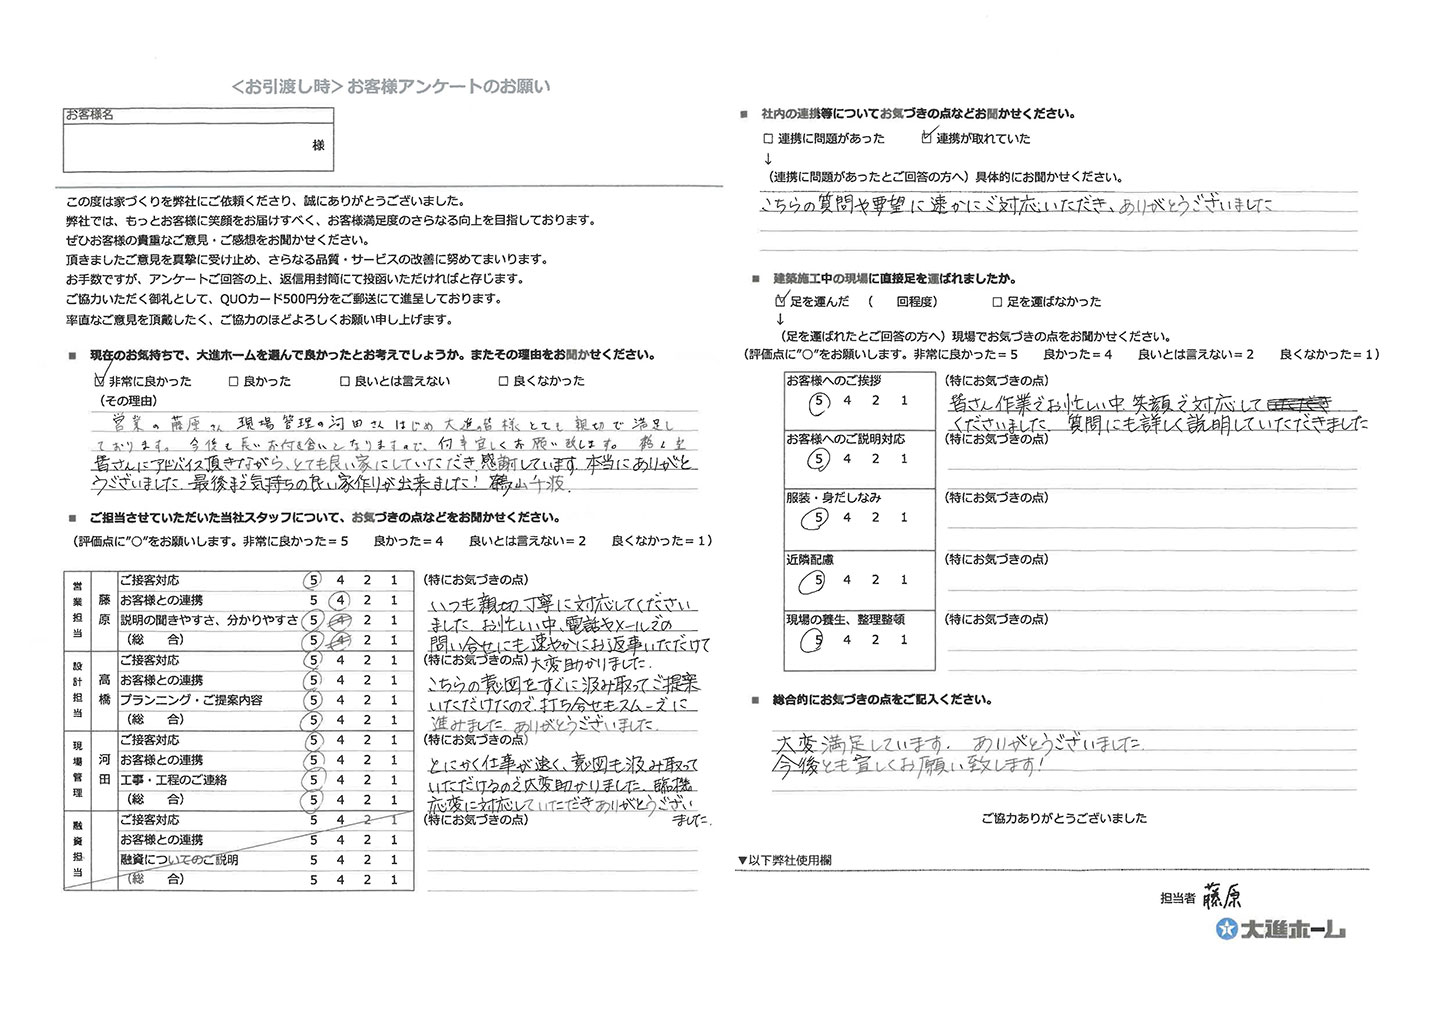 ＜お引渡し時＞お客様アンケートのお願い
お客様名
様
この度は家づくりを弊社にご依頼くださり、誠にありがとうございました。
弊社では、もっとお客様に笑顔をお届けすべく、お客様満足度のさらなる向上を目指しております。
ぜひお客様の貴重なご意見・ご感想をお聞かせください。
頂きましたご意見を真摯に受け止め、さらなる品質・サービスの改善に努めてまいります。
お手数ですが、アンケートご回答の上、返信用封筒にて投函いただければと存じます。
ご協力いただく御礼として、QUOカード500円分をご郵送にて進呈しております。
率直なご意見を頂戴したく、ご協力のほどよろしくお願い申し上げます。
■ 現在のお気持ちで、大進ホームを選んで良かったとお考えでしょうか。またその理由をお聞かせください。
☑ 非常に良かった □ 良かった □ 良いとは言えない □ 良くなかった
（その理由）
営業の藤原さん 現場管理の河田さんはじめ大進の皆様とても親切で満足し
ております。今後も長いお付き合いとなりますので、何卒宜しくお願い致します。
皆さんにアドバイス頂きながら、とても良い家にしていただき感謝しています。本当にありがと
うございました。最後まで気持ちの良い家作りが出来ました！ 鶴山千波
■ ご担当させていただいた当社スタッフについて、お気づきの点などをお聞かせください。
（評価点に”○”をお願いします。非常に良かった＝５ 良かった＝４ 良いとは言えない＝２ 良くなかった＝１）
営業担当 藤原
ご接客対応 5 4 2 1
お客様との連携 5 4 2 1
説明の聞きやすさ、分かりやすさ 5 4 2 1
（総 合） 5 4 2 1
（特にお気づきの点）
いつも親切、丁寧に対応してください
ました。お忙しい中、電話やメールでの
問い合せにも速やかにお返事いただけて
大変助かりました。
設計担当 高橋
ご接客対応 5 4 2 1
お客様との連携 5 4 2 1
プランニング・ご提案内容 5 4 2 1
（総 合） 5 4 2 1
（特にお気づきの点）
こちらの意図をすぐに汲み取ってご提案
いただけたので、打ち合せもスムーズに
進みました。ありがとうございました。
現場管理 河田
ご接客対応 5 4 2 1
お客様との連携 5 4 2 1
工事・工程のご連絡 5 4 2 1
（総 合） 5 4 2 1
（特にお気づきの点）
とにかく仕事が速く、意図も汲み取って
いただけるので大変助かりました。臨機
応変に対応していただきありがとうござい
ました。
融資担当
ご接客対応 5 4 2 1
お客様との連携 5 4 2 1
融資についてのご説明 5 4 2 1
（総 合） 5 4 2 1
（特にお気づきの点）
■ 社内の連携等についてお気づきの点などお聞かせください。
□ 連携に問題があった ☑ 連携が取れていた
↓
（連携に問題があったとご回答の方へ）具体的にお聞かせください。
こちらの質問や要望に速かにご対応いただき、ありがとうございました
■ 建築施工中の現場に直接足を運ばれましたか。
☑ 足を運んだ （ 回程度） □ 足を運ばなかった
↓
（足を運ばれたとご回答の方へ）現場でお気づきの点をお聞かせください。
（評価点に”○”をお願いします。非常に良かった＝５ 良かった＝４ 良いとは言えない＝２ 良くなかった＝１）
お客様へのご挨拶
5 4 2 1
（特にお気づきの点）
皆さん作業でお忙しい中、笑顔で対応して
くださいました。質問にも詳しく説明していただきました
お客様へのご説明対応
5 4 2 1
（特にお気づきの点）
服装・身だしなみ
5 4 2 1
（特にお気づきの点）
近隣配慮
5 4 2 1
（特にお気づきの点）
現場の養生、整理整頓
5 4 2 1
（特にお気づきの点）
■ 総合的にお気づきの点をご記入ください。
大変満足しています。ありがとうございました。
今後とも宜しくお願い致します！
ご協力ありがとうございました
▼以下弊社使用欄
担当者 藤原
大進ホーム